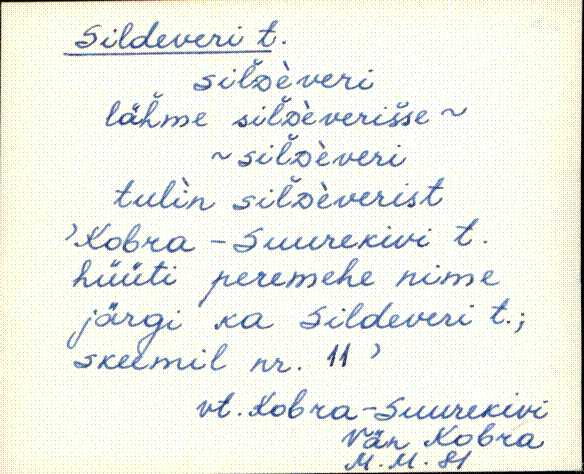 Sildeveri t.
sil̆ᴅèveri
läh̆me sil̆ᴅèverišse ~
~ sil̆ᴅèveri
tulìn sil̆ᴅèverist
’Kobra - Suurekivi t.
hüüti peremehe nime
järgi ka Sildeveri t.;
skeemil nr. 11’
vt. Kobra-Suurekivi
Vän Kobra
M. M. 81